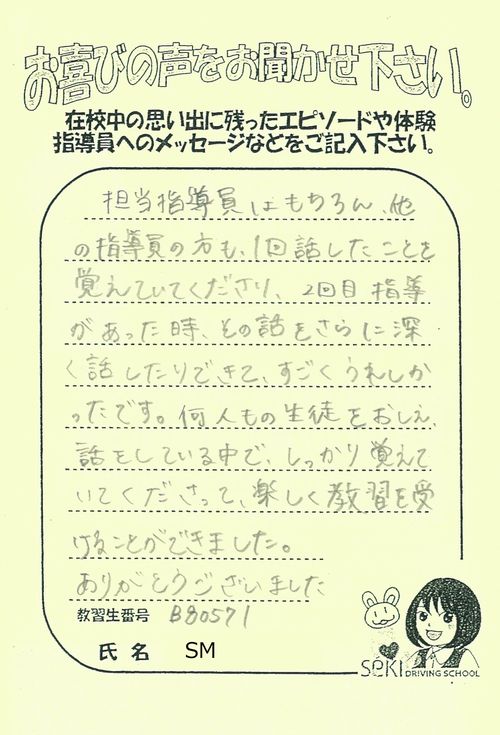 お喜びの声をお聞かせ下さい。
在校中の思い出に残ったエピソードや体験
指導員へのメッセージなどをご記入下さい。
担当指導員はもちろん、他
の指導員の方も、1回話したことを
覚えていてくださり、2回目指導
があった時、その話をさらに深
く話したりできて、すごくうれしか
ったです。何人もの生徒をおしえ、
話をしている中で、しっかり覚えて
いてくださって、楽しく教習を受
けることができました。
ありがとうございました
教習生番号 B80571
氏名 SM
SEKI DRIVING SCHOOL